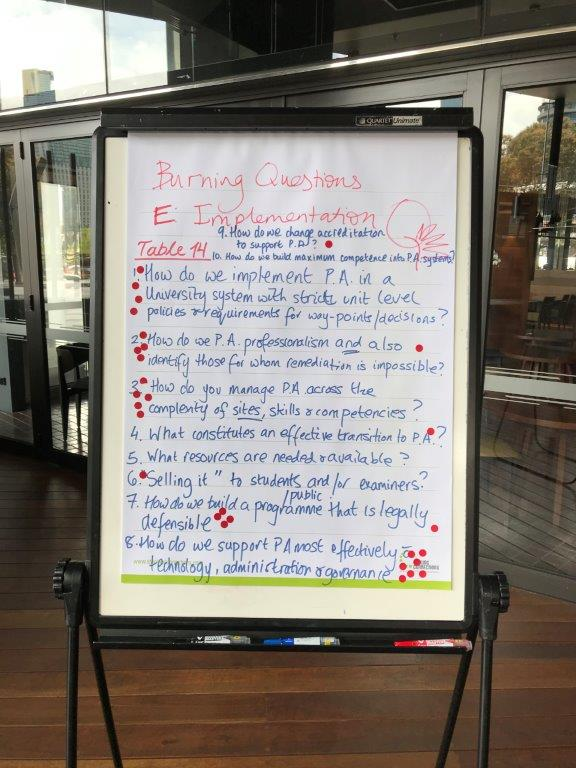 QUARTET Unimate
Burning Questions
E: Implementation
9. How do we change accreditation
to support P.A.?
Table 14
10. How do we build maximum competence into P.A. systems?
1. How do we implement P.A. in a
University system with strict unit level
policies & requirements for way-points/decisions?
2. How do we P.A. professionalism and also
identify those for whom remediation is impossible?
3. How do you manage P.A. across the
complexity of sites, skills & competencies?
4. What constitutes an effective transition to P.A.?
5. What resources are needed & available?
6. "Selling it" to students and/or examiners?
/public
7. How do we build a programme that is legally
defensible
8. How do we support PA most effectively -
technology, administration & governance